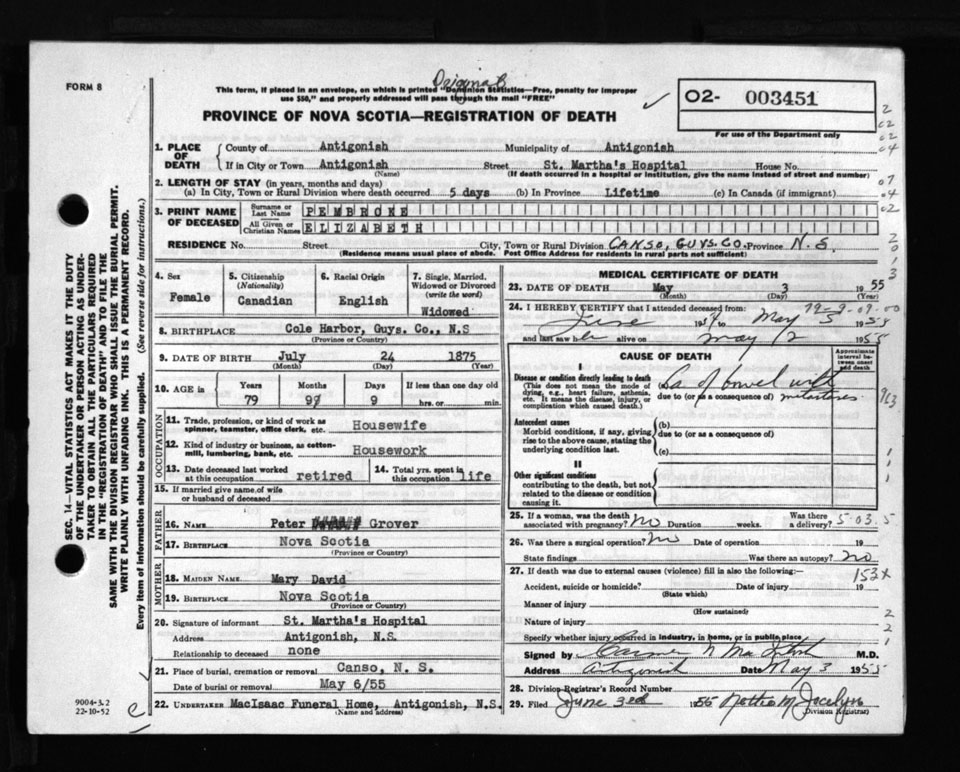 FORM 8
Original
This form, if placed in an envelope, on which is printed "Dominion Statistics—Free, penalty for improper
use $50," and properly addressed will pass through the mail "FREE"
02- 003451
For use of the Department only
PROVINCE OF NOVA SCOTIA—REGISTRATION OF DEATH
1. PLACE OF DEATH
County of Antigonish Municipality of Antigonish
If in City or Town Antigonish Street St. Martha's Hospital House No.
(Name) (If death occurred in a hospital or institution, give the name instead of street and number)
2. LENGTH OF STAY (in years, months and days)
(a) In City, Town or Rural Division where death occurred 5 days (b) In Province Lifetime (c) In Canada (if immigrant)
3. PRINT NAME OF DECEASED
Surname or Last Name PEMBROKE
All Given or Christian Names ELIZABETH
RESIDENCE No. Street City, Town or Rural Division CANSO, GUYS. CO. Province N.S.
(Residence means usual place of abode. Post Office Address for residents in rural parts not sufficient)
4. Sex
Female
5. Citizenship (Nationality)
Canadian
6. Racial Origin
English
7. Single, Married, Widowed or Divorced (write the word)
Widowed
8. BIRTHPLACE Cole Harbor, Guys. Co., N.S
(Province or Country)
9. DATE OF BIRTH July 24 1875
(Month) (Day) (Year)
10. AGE in Years Months Days If less than one day old
79 9 9 hrs. or min.
OCCUPATION
11. Trade, profession, or kind of work as spinner, teamster, office clerk, etc. Housewife
12. Kind of industry or business, as cotton-mill, lumbering, bank, etc. Housework
13. Date deceased last worked at this occupation retired
14. Total yrs. spent in this occupation life
15. If married give name of wife or husband of deceased
FATHER
16. NAME Peter Grover
17. BIRTHPLACE Nova Scotia
(Province or Country)
MOTHER
18. MAIDEN NAME Mary David
19. BIRTHPLACE Nova Scotia
(Province or Country)
20. Signature of informant St. Martha's Hospital
Address Antigonish, N.S.
Relationship to deceased none
21. Place of burial, cremation or removal Canso, N. S.
Date of burial or removal May 6/55
22. UNDERTAKER MacIsaac Funeral Home, Antigonish, N.S.
(Name and address)
MEDICAL CERTIFICATE OF DEATH
23. DATE OF DEATH May 3 1955
(Month) (Day) (Year)
24. I HEREBY CERTIFY that I attended deceased from:
June 19 to May 3 1955
and last saw her alive on May 2 1955
CAUSE OF DEATH
Approximate interval between onset and death
I
Disease or condition directly leading to death
(This does not mean the mode of dying, e.g., heart failure, asthenia, etc. It means the disease, injury, or complication which caused death.)
Ca of bowel with
due to (or as a consequence of) metastases
Antecedent causes
Morbid conditions, if any, giving rise to the above cause, stating the underlying condition last.
(b)
due to (or as a consequence of)
(c)
II
Other significant conditions
contributing to the death, but not related to the disease or condition causing it.
25. If a woman, was the death associated with pregnancy? no Duration weeks. Was there a delivery?
5-03.5
26. Was there a surgical operation? no Date of operation 19
State findings Was there an autopsy? no
27. If death was due to external causes (violence) fill in also the following:—
153x
Accident, suicide or homicide? Date of injury 19
(State which)
Manner of injury
(How sustained)
Nature of injury
Specify whether injury occurred in industry, in home, or in public place
Signed by M.D.
Address Antigonish Date May 3 1955
28. Division Registrar's Record Number
29. Filed June 3rd 1955 Nettie M. Jocelyn
Division Registrar)
SEC. 14—VITAL STATISTICS ACT MAKES IT THE DUTY
OF THE UNDERTAKER OR PERSON ACTING AS UNDER-
TAKER TO OBTAIN ALL THE PARTICULARS REQUIRED
IN THE "REGISTRATION OF DEATH" AND TO FILE THE
SAME WITH THE DIVISION REGISTRAR WHO SHALL ISSUE THE BURIAL PERMIT.
WRITE PLAINLY WITH UNFADING INK. THIS IS A PERMANENT RECORD.
Every item of information should be carefully supplied. (See reverse side for instructions.)
9004-3.2
22-10-52